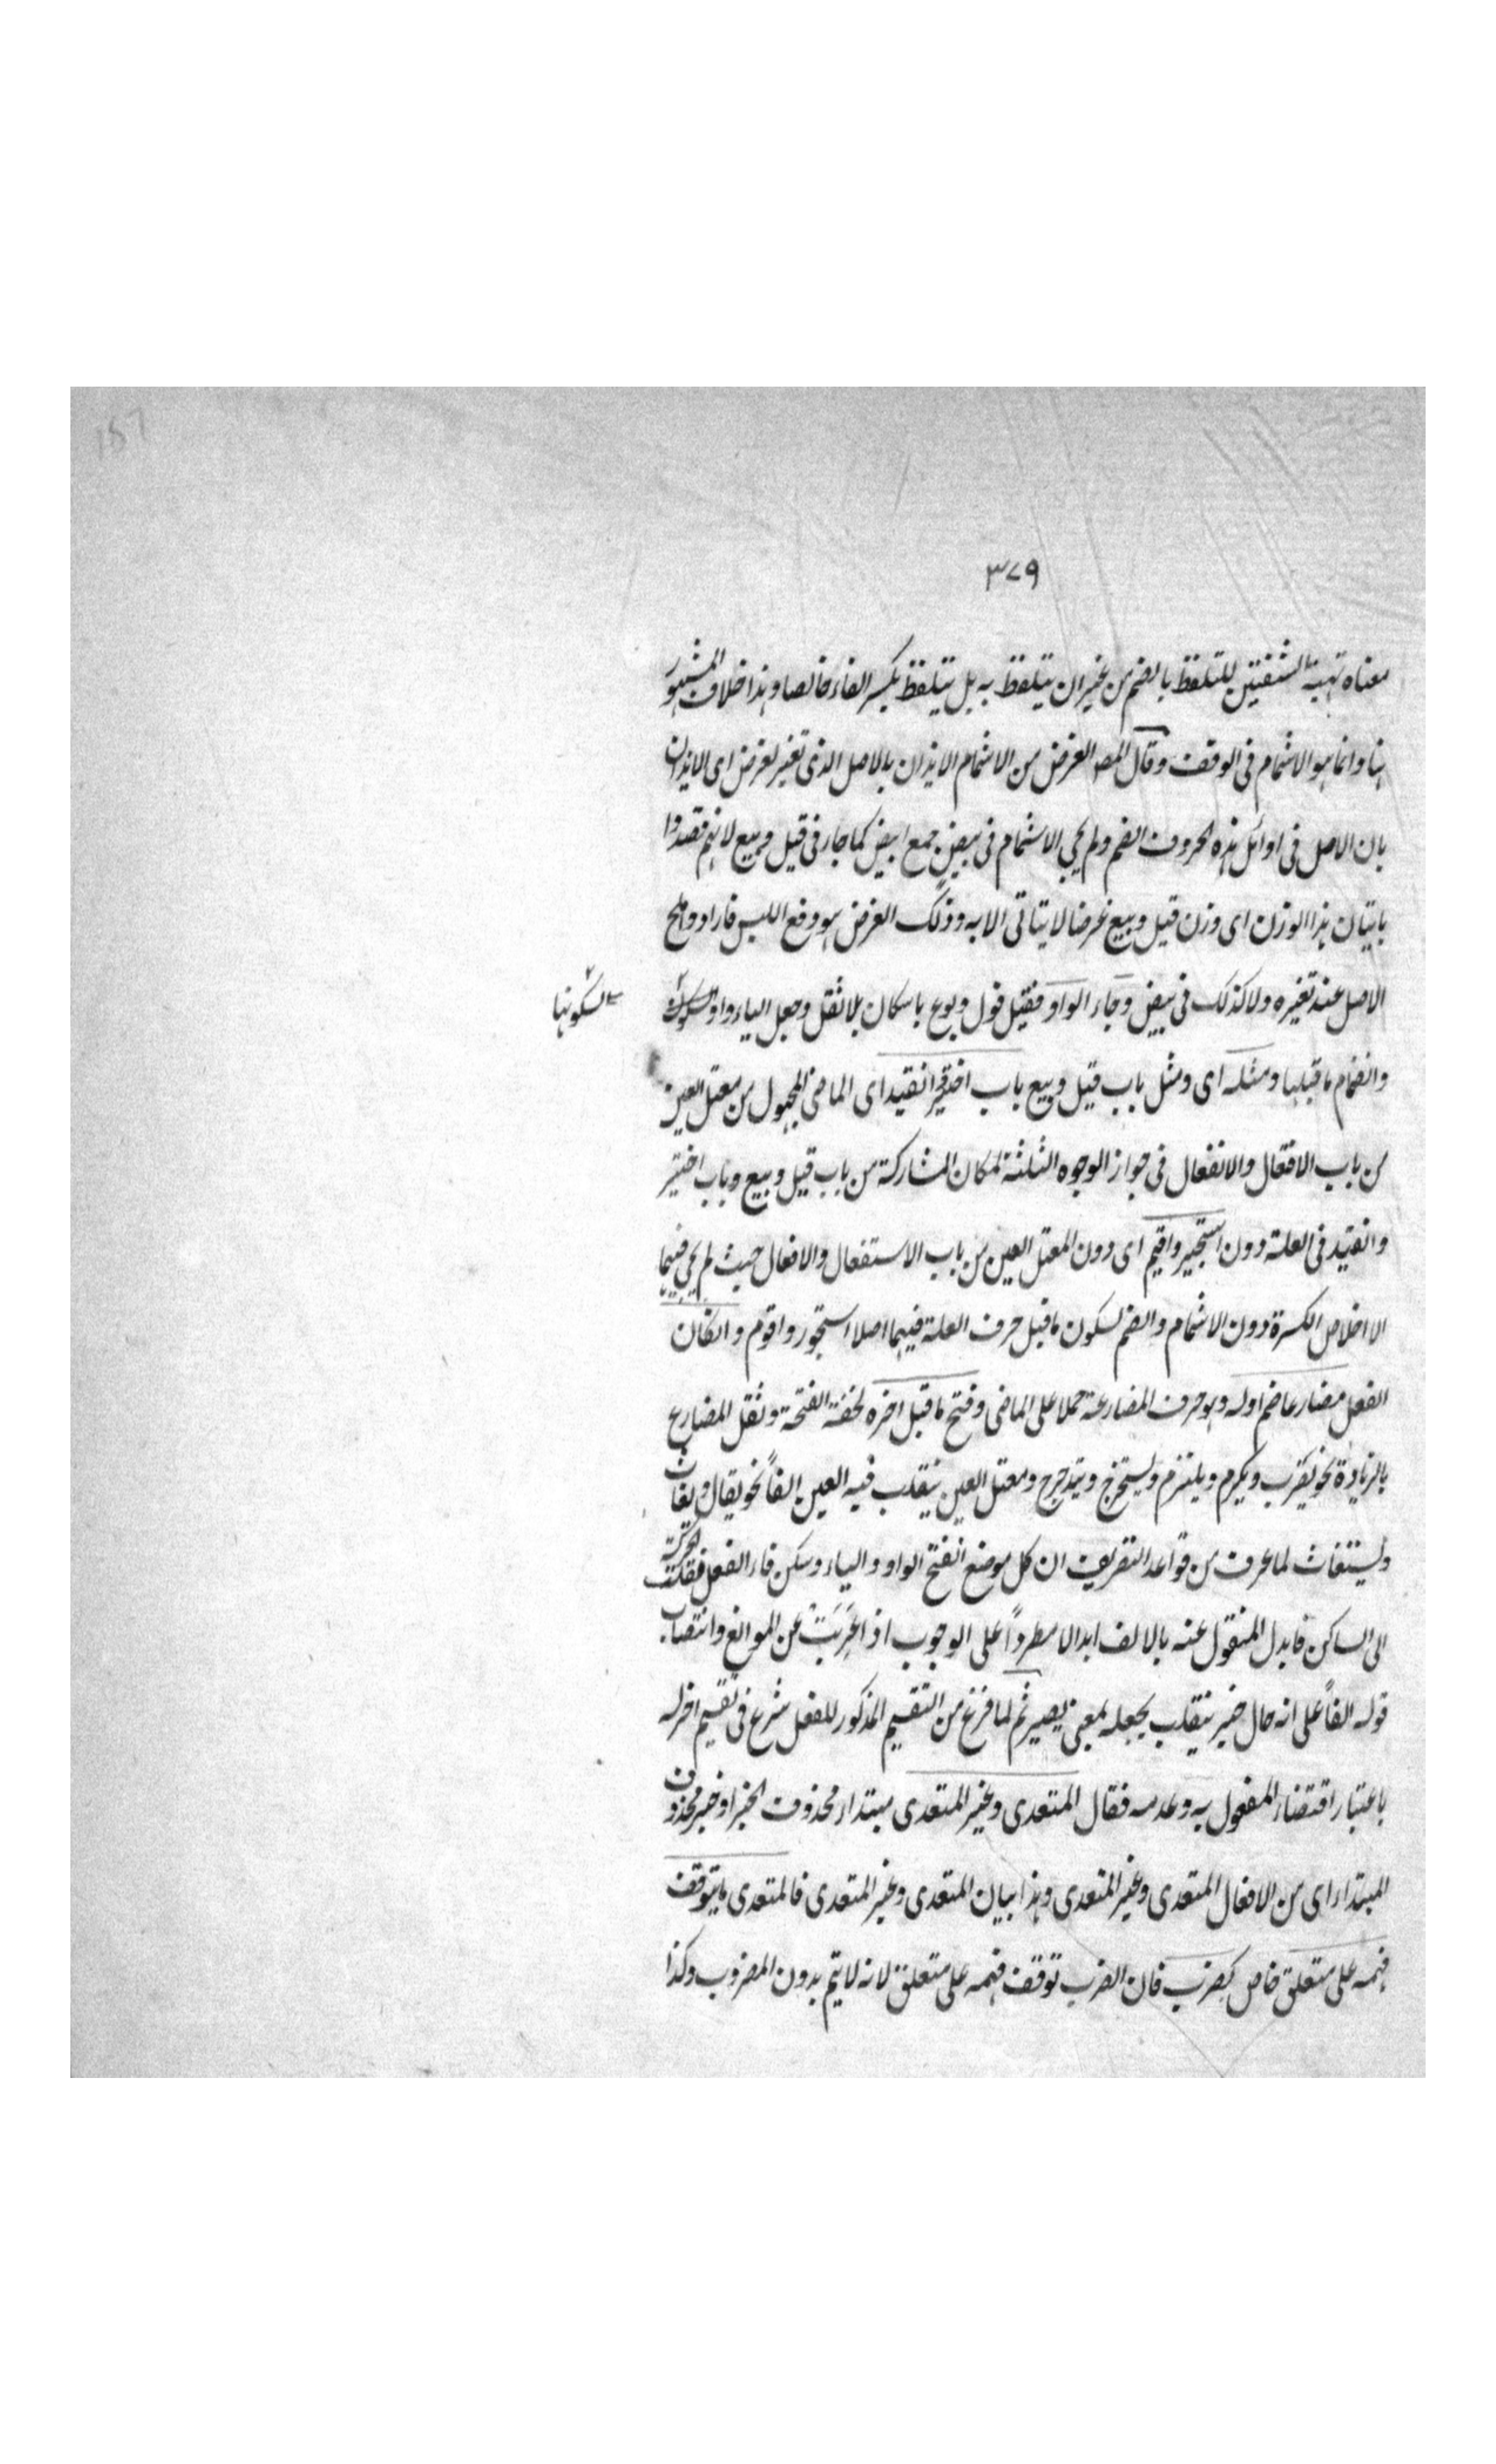 ٣٧٩
معناه تهيئة الشفتين للتلفظ بالضم من غير ان يتلفظ به بل يتلفظ بكسر الفاء خالصا وهذا خلاف المشهور
هنا وانما هو الاشمام فى الوقف وقال المص الغرض من الاشمام الايذان بالاصل الذى تغير لغرض اى الايذان
بان الاصل فى اوائل هذه الحروف الضم ولم يجئ الاشمام فى بيض جمع ابيض كما جاء فى قيل وبيع لانهم قصدوا
باتيان هذا الوزن اى وزن قيل وبيع غرضا لا يتاتى الا به وذلك الغرض هو دفع اللبس فارادوا
الاصل عند تغيره ولا كذلك فى بيض وجاء الواو فقيل قول وبوع باسكان بلا نقل وجعل الياء واوا
لسكونها
وانضمام ما قبلها ومثله اى ومثل باب قيل وبيع باب اختير وانقيد اى الماضى المجهول من معتل العين
من باب الافتعال والانفعال فى جواز الوجوه الثلثة لمكان المشاركة من باب قيل وبيع وباب اختير
وانقيد فى العلة دون استخير واقيم اى دون المعتل العين من باب الاستفعال والافعال حيث لم يجئ فيهما
الا اخلاص الكسرة دون الاشمام والضم لسكون ما قبل حرف العلة فيهما اصلا استخور واقوم وانكان
الفعل مضارعا ضم اوله وهو حرف المضارعة حملا على الماضى وفتح ما قبل اخره لخفة الفتحة وثقل المضارع
بالزيادة نحو يضرب ويكرم ويلتزم ويستخرج ويتدحرج ومعتل العين ينقلب فيه العين الفاً نحو يقال ويغاث
ويستغاث لما عرف من قواعد التصريف ان كل موضع انفتح الواو والياء وسكن فاء الفعل فنقلت الحركة
الى الساكن فابدل المنقول عنه بالالف ابدالا مطرداً على الوجوب اذا عَرِيَتْ عن الموانع وانتصاب
قوله الفاً على انه حال ينقلب بجعله بمعنى يصير ثم لما فرغ من التقسيم المذكور للفعل شرع فى تقسيم اخر له
باعتبار اقتضاء المفعول به وعدمه فقال المتعدى وغير المتعدى مبتداء محذوف الخبر او خبر محذوف
المبتداء اى من الافعال المتعدى وغير المتعدى وهذا بيان المتعدى وغير المتعدى فالمتعدى ما يتوقف
فهمه على متعلق خاص كضرب فان الضرب توقف فهمه على متعلق لانه لا يتم بدون المضروب وكذا